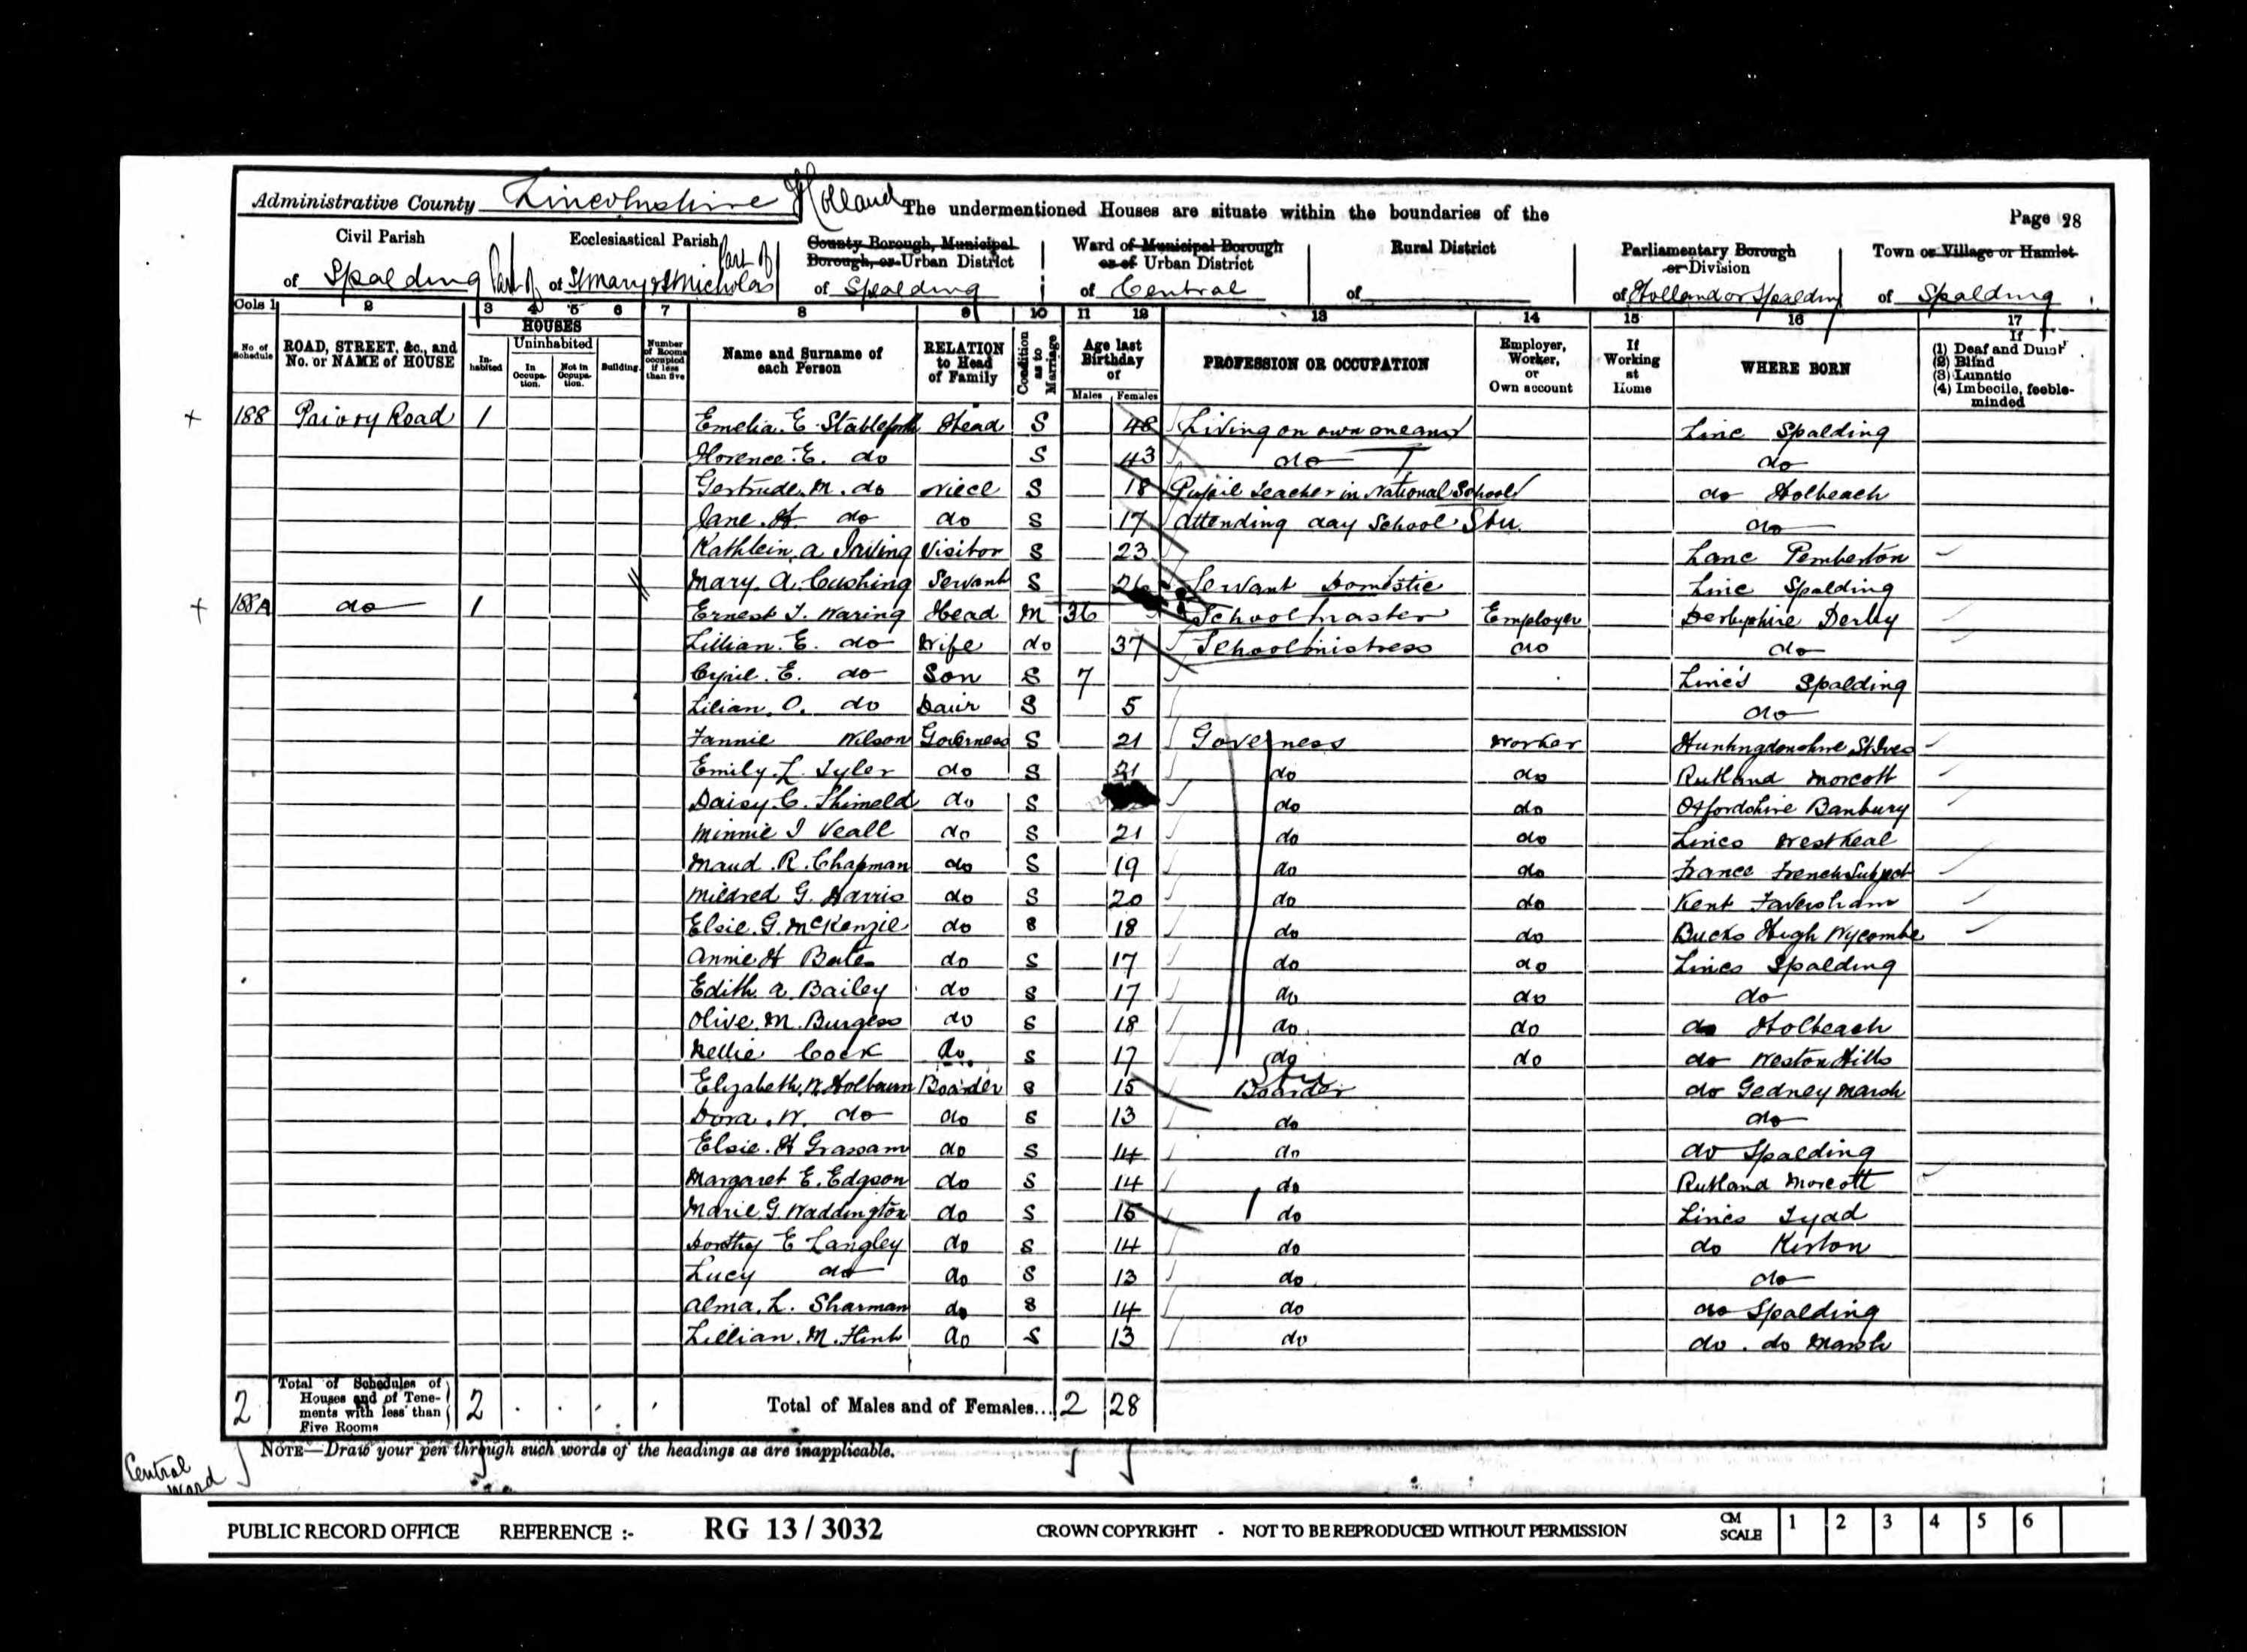 Administrative County Lincolnshire Holland The undermentioned Houses are situate within the boundaries of the Page 28
Civil Parish of Spalding Part of
Ecclesiastical Parish Part of of St Mary & St Nicholas
County Borough, Municipal Borough, or Urban District of Spalding
Ward of Municipal Borough or of Urban District of Central
Rural District of
Parliamentary Borough or Division of Holland or Spalding
Town or Village or Hamlet of Spalding
Cols 1 2 3 4 5 6 7 8 9 10 11 12 13 14 15 16 17
No. of Schedule
ROAD, STREET, &c., and No. or NAME of HOUSE
HOUSES
Inhabited
Uninhabited
In Occupation.
Not in Occupation.
Building.
Number of Rooms occupied if less than five
Name and Surname of each Person
RELATION to Head of Family
Condition as to Marriage
Age last Birthday of
Males Females
PROFESSION OR OCCUPATION
Employer, Worker, or Own account
If Working at Home
WHERE BORN
If (1) Deaf and Dumb (2) Blind (3) Lunatic (4) Imbecile, feeble-minded
188 Priory Road 1 Emelia. E. Stableforth Head S 48 Living on own means Linc Spalding
Florence. E. do S 43 do do
Gertrude. M. do Niece S 18 Pupil Teacher in National School do Holbeach
Jane. H. do do S 17 attending day School Stu. do
Kathlein. A Visitor S 23 Lanc Pemberton
Mary. A. Cushing Servant S 26 Servant Domestic Linc Spalding
188A do 1 Ernest J. Waring Head M 36 Schoolmaster Employer Derbyshire Derby
Lillian. E. do Wife do 37 Schoolmistress do do
Cyril. E. do Son S 7 Lincs Spalding
Lilian. O. do Daur S 5 do
Fannie Wilson Governess S 21 Governess Worker Huntingdonshire St Ives
Emily. L. Tyler do S 21 do do Rutland Morcott
Daisy. C. Shimeld do S do do Oxfordshire Banbury
Minnie I Veall do S 21 do do Lincs West Keal
Maud. R. Chapman do S 19 do do France French Subject
Mildred G. Harris do S 20 do do Kent Faversham
Elsie. G. McKenzie do S 18 do do Bucks High Wycombe
Annie H Bates do S 17 do do Lincs Spalding
Edith. A. Bailey do S 17 do do do
Olive. M. Burgess do S 18 do do do Holbeach
Nellie Cock do S 17 do do do Weston Hills
Elizabeth. W. Holbourn Boarder S 15 Boarder Stu do Gedney Marsh
Dora. W. do do S 13 do do
Elsie. H Grassam do S 14 do do Spalding
Margaret E. Edgson do S 14 do Rutland Morcott
Marie. G. Waddington do S 15 do Lincs Tydd
Dorothy E Langley do S 14 do do Kirton
Lucy do do S 13 do do
Alma. L. Sharman do S 14 do do Spalding
Lillian. M. Flint do S 13 do do. do Marsh
2 Total of Schedules of Houses and of Tenements with less than Five Rooms 2 Total of Males and of Females... 2 28
NOTE—Draw your pen through such words of the headings as are inapplicable.
Central Ward
PUBLIC RECORD OFFICE REFERENCE :- RG 13 / 3032 CROWN COPYRIGHT - NOT TO BE REPRODUCED WITHOUT PERMISSION CM SCALE 1 2 3 4 5 6